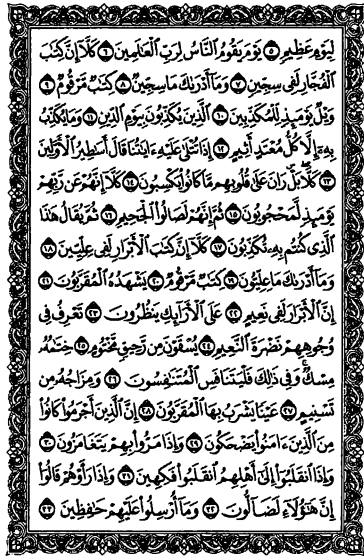 لِيَوْمٍ عَظِيمٍ ٥ يَوْمَ يَقُومُ النَّاسُ لِرَبِّ الْعَالَمِينَ ٦ كَلَّا إِنَّ كِتَابَ
الْفُجَّارِ لَفِي سِجِّينٍ ٧ وَمَا أَدْرَاكَ مَا سِجِّينٌ ٨ كِتَابٌ مَرْقُومٌ ٩
وَيْلٌ يَوْمَئِذٍ لِلْمُكَذِّبِينَ ١٠ الَّذِينَ يُكَذِّبُونَ بِيَوْمِ الدِّينِ ١١ وَمَا يُكَذِّبُ
بِهِ إِلَّا كُلُّ مُعْتَدٍ أَثِيمٍ ١٢ إِذَا تُتْلَى عَلَيْهِ آيَاتُنَا قَالَ أَسَاطِيرُ الْأَوَّلِينَ
١٣ كَلَّا بَلْ رَانَ عَلَى قُلُوبِهِمْ مَا كَانُوا يَكْسِبُونَ ١٤ كَلَّا إِنَّهُمْ عَنْ رَبِّهِمْ
يَوْمَئِذٍ لَمَحْجُوبُونَ ١٥ ثُمَّ إِنَّهُمْ لَصَالُوا الْجَحِيمِ ١٦ ثُمَّ يُقَالُ هَذَا
الَّذِي كُنْتُمْ بِهِ تُكَذِّبُونَ ١٧ كَلَّا إِنَّ كِتَابَ الْأَبْرَارِ لَفِي عِلِّيِّينَ ١٨
وَمَا أَدْرَاكَ مَا عِلِّيُّونَ ١٩ كِتَابٌ مَرْقُومٌ ٢٠ يَشْهَدُهُ الْمُقَرَّبُونَ ٢١
إِنَّ الْأَبْرَارَ لَفِي نَعِيمٍ ٢٢ عَلَى الْأَرَائِكِ يَنْظُرُونَ ٢٣ تَعْرِفُ فِي
وُجُوهِهِمْ نَضْرَةَ النَّعِيمِ ٢٤ يُسْقَوْنَ مِنْ رَحِيقٍ مَخْتُومٍ ٢٥ خِتَامُهُ
مِسْكٌ وَفِي ذَلِكَ فَلْيَتَنَافَسِ الْمُتَنَافِسُونَ ٢٦ وَمِزَاجُهُ مِنْ
تَسْنِيمٍ ٢٧ عَيْنًا يَشْرَبُ بِهَا الْمُقَرَّبُونَ ٢٨ إِنَّ الَّذِينَ أَجْرَمُوا كَانُوا
مِنَ الَّذِينَ آمَنُوا يَضْحَكُونَ ٢٩ وَإِذَا مَرُّوا بِهِمْ يَتَغَامَزُونَ ٣٠
وَإِذَا انْقَلَبُوا إِلَى أَهْلِهِمُ انْقَلَبُوا فَكِهِينَ ٣١ وَإِذَا رَأَوْهُمْ قَالُوا
إِنَّ هَؤُلَاءِ لَضَالُّونَ ٣٢ وَمَا أُرْسِلُوا عَلَيْهِمْ حَافِظِينَ ٣٣